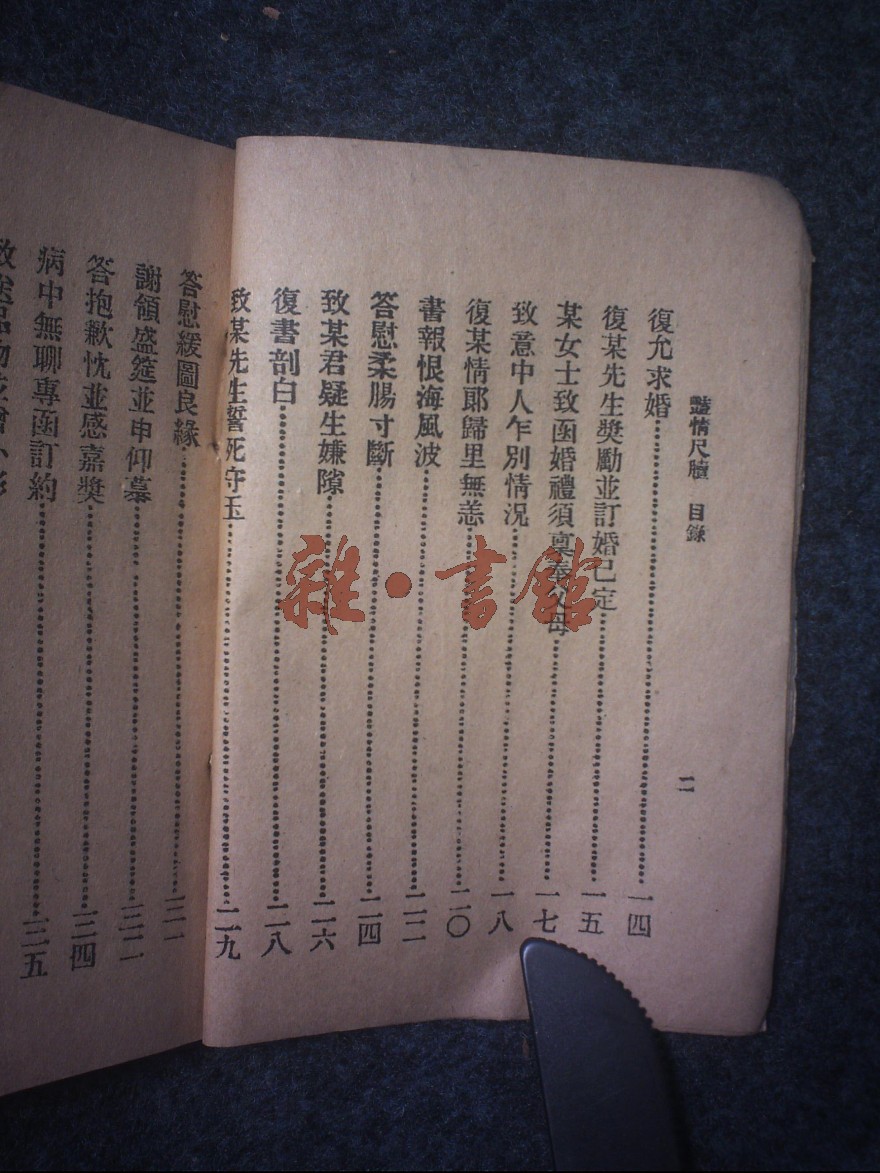 豔情尺牘 目錄
二
復允求婚⋯⋯一四
復某先生獎勵並訂婚已定⋯⋯一五
某女士致函婚禮須稟奉父母⋯⋯一七
致意中人乍別情況⋯⋯一八
復某情郎歸里無恙⋯⋯二〇
書報恨海風波⋯⋯二二
答慰柔腸寸斷⋯⋯二四
致某君疑生嫌隙⋯⋯二六
復書剖白⋯⋯二八
致某先生誓死守玉⋯⋯二九
答慰緩圖良緣⋯⋯三一
謝領盛筵並申仰慕⋯⋯三二
答抱歉忱並感嘉獎⋯⋯三四
病中無聊專函訂約⋯⋯三五
雜·書館